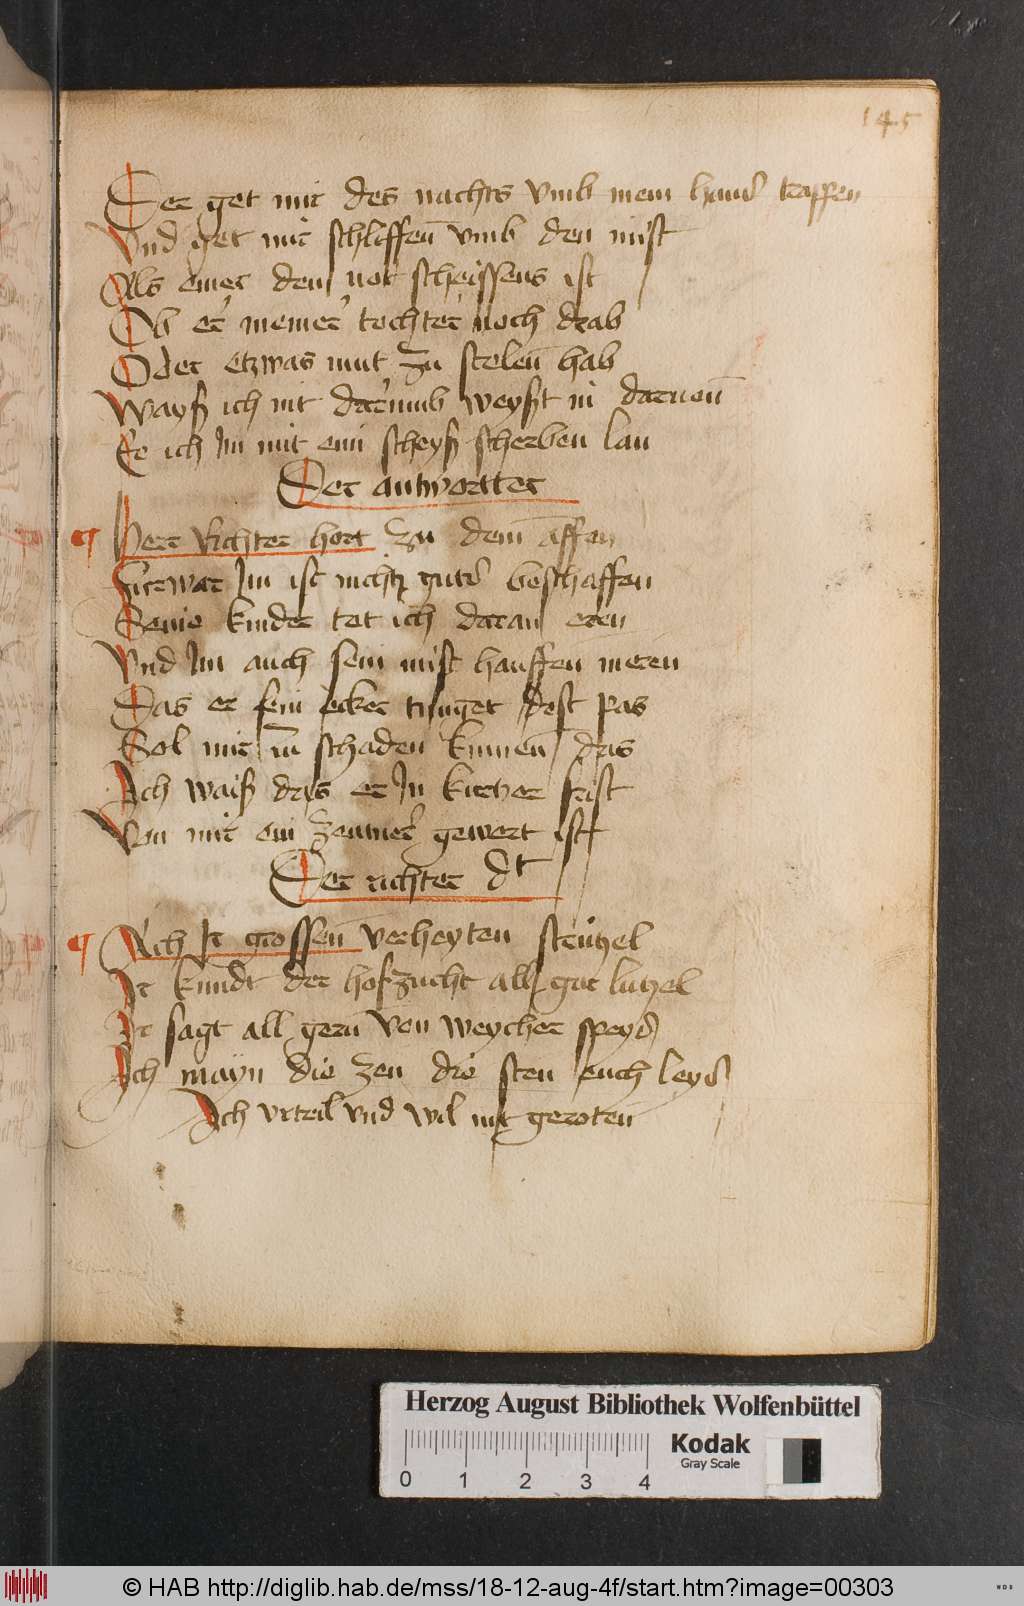 145
Der get mir des nachts vmb mein haus trapffen
Vnd get mir schliffen vmb den mist
Als einer dem not scheissens ist
Ob er meiner tochter noch drab
Oder etzwas mut zu stelen hab
Wayß ich nit darumb weyßt in darnen
Ee ich Im mit eim scheyß scherben lan
Der antwortter
¶ Herr Richter hort zu dem affen
Furwar Im ist nichtz guts beschaffen
Seine kinder tet ich daran eren
Vnd Im auch sein mist hauffen meren
Das er sein ecker tunget dest pas
Sol mir zu schaden kumen das
Ich waiß das er In kurtzer frist
Von mir ein zentner gewert ist
Der richter dt
¶ Ach Ir grossen verheyten steutzel
Ir kundt der hofzucht all gar lutzel
Ir sagt all gern von weycher speyß
Ich mayn die zen die sten euch leys
Ich vrteil vnd wil nit geroten
Herzog August Bibliothek Wolfenbüttel
Kodak
Gray Scale
0 1 2 3 4
© HAB http://diglib.hab.de/mss/18-12-aug-4f/start.htm?image=00303